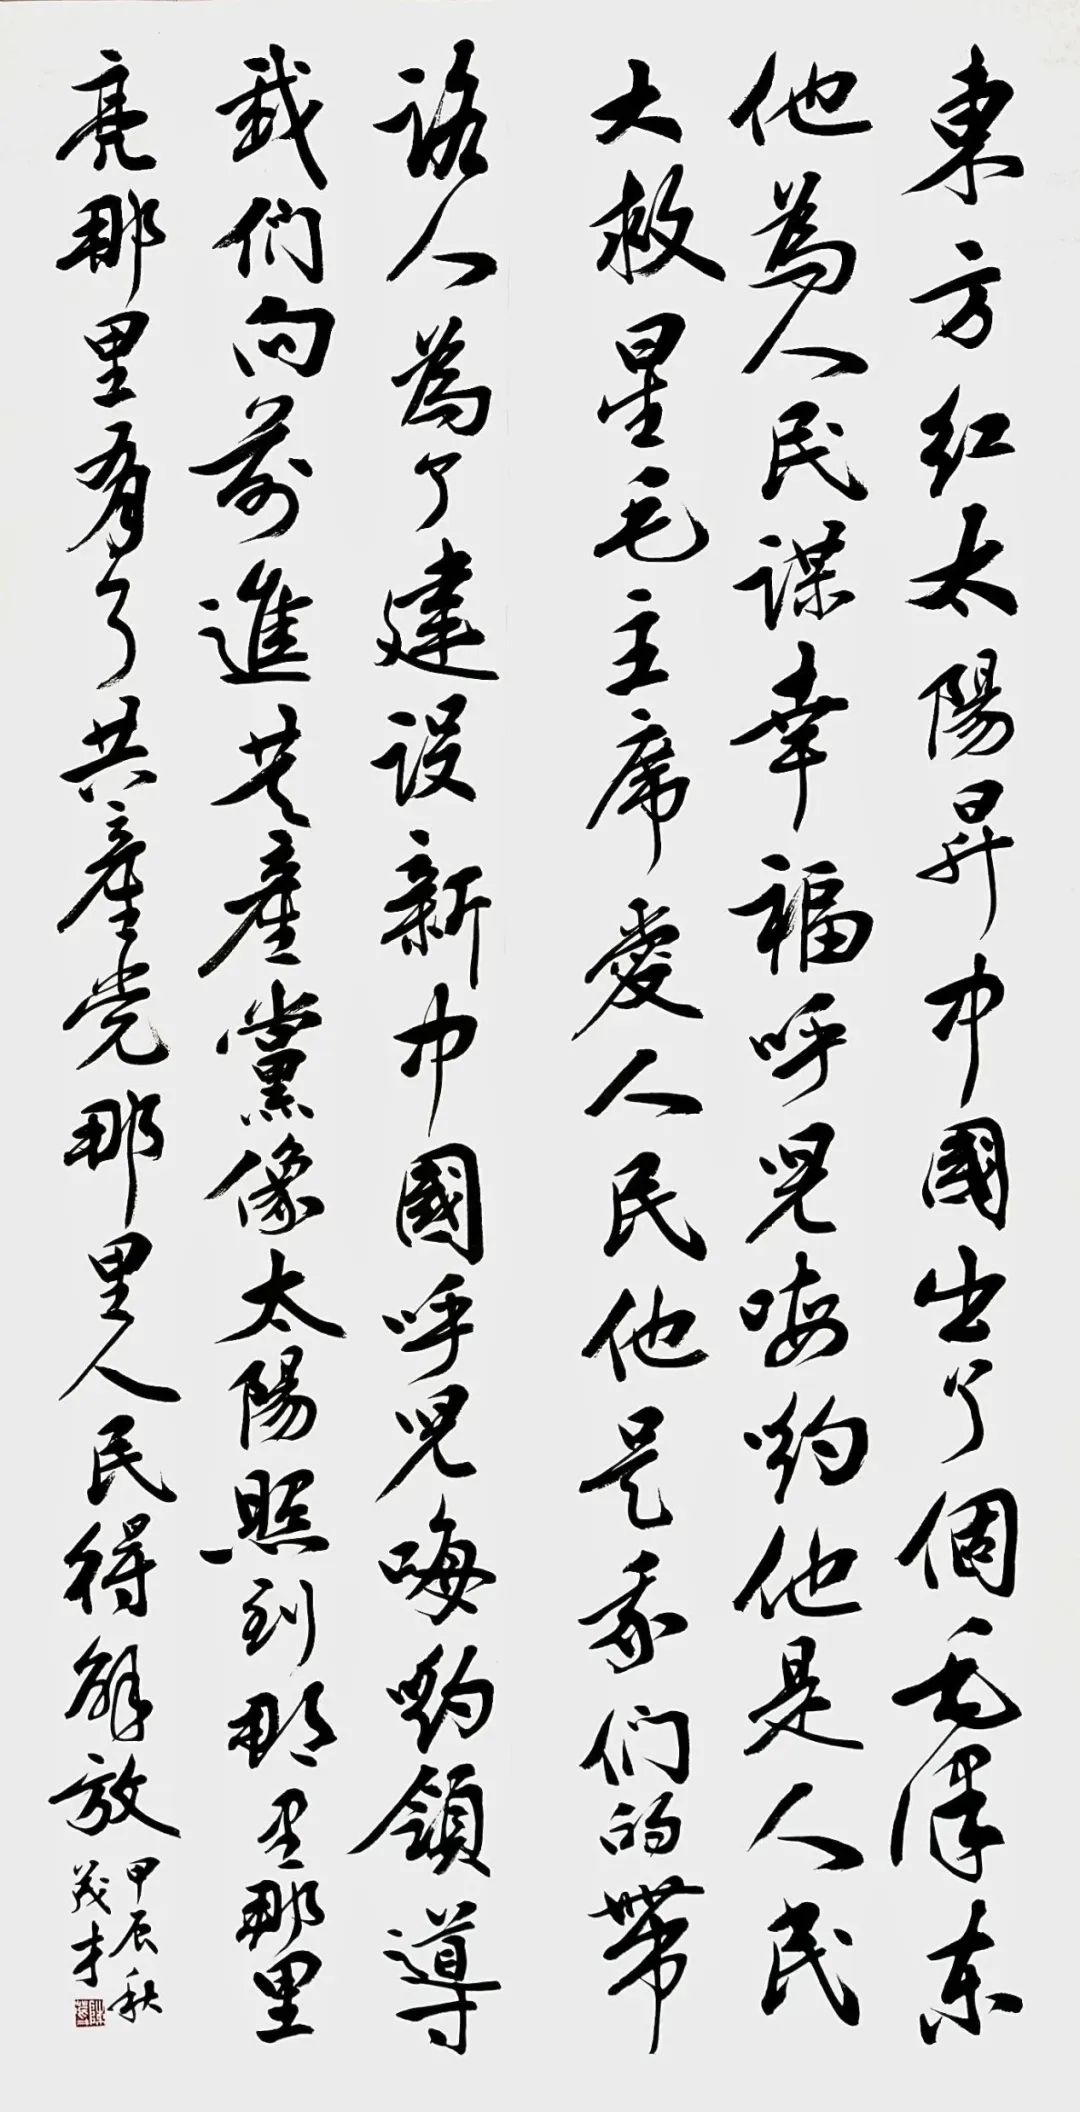 東方红太陽昇中國出了個毛泽东
他為人民谋幸福呼兒嗨喲他是人民
大救星毛主席愛人民他是我们的带
路人為了建设新中國呼兒嗨喲領導
我们向前進共產黨像太陽照到那里那里
亮那里有了共產党那里人民得解放
甲辰秋
茂才